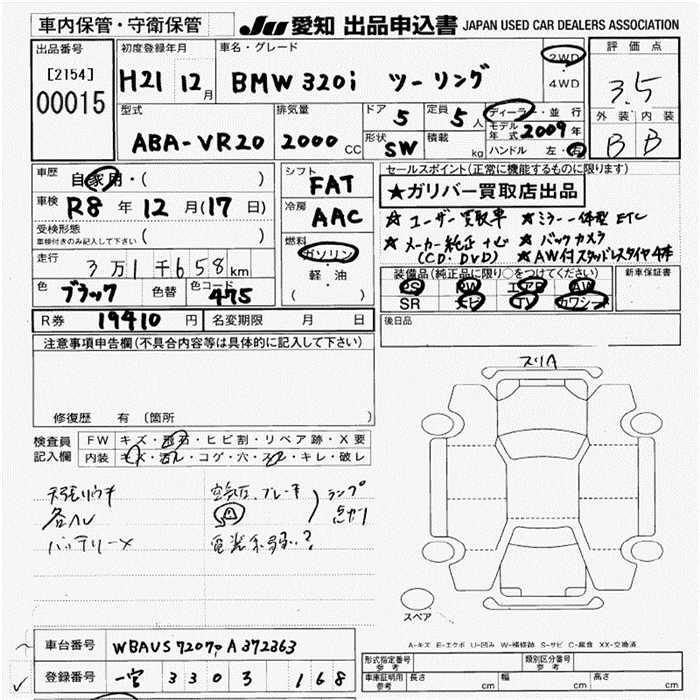 車内保管・守衛保管
JU 愛知 出品申込書 JAPAN USED CAR DEALERS ASSOCIATION
出品番号 [2154] 00015
初度登録年月 H21 12月
車名・グレード BMW 320i ツーリング
2WD・4WD
評価点 3.5
外装 内装 B B
型式 ABA-VR20
排気量 2000 CC
ドア 5 定員 5人
形状 SW 積載 kg
ディーラー・並行
モデル年式 2009年
ハンドル 左・右
車歴 自家用・( )
車検 R8年 12月(17日)
受検形態 車検付きのみ記入して下さい ( )
走行 3万1千658km
色 ブラック 色替 色コード 475
シフト FAT
冷房 AAC
燃料 ガソリン 軽・油 ( )
セールスポイント(正常に機能するものに限ります)
★ガリバー買取店出品
☆ユーザー買取車 ☆ミラー一体型 ETC
☆メーカー純正ナビ (CD・DVD) ☆バックカメラ
☆AW付スタッドレスタイヤ4本
装備品(純正品に限り○をつけてください) 新車保証書
PS PW エアB AW
SR ナビ TV カワシート
R券 19410円 名変期限 月 日
後日品
注意事項申告欄(不具合内容等は具体的に記入して下さい)
修復歴 有 (箇所
検査員記入欄
FW キズ・飛石・ヒビ割・リペア跡・X要
内装 キズ・汚れ・コゲ・穴・スレ・キレ・破レ
天張リウキ
各ヘレ
バッテリー×
空気圧、ブレーキ ランプ点灯
電装系弱い?
スリA
スペア
A-キズ E-エクボ U-凹み W-補修跡 S-サビ C-腐食 XX-交換済
車台番号 WBAUS72070A372363
登録番号 一宮 330 ろ 168
形式指定番号 参考 類別区分番号 参考
車庫証明用参考 長さ cm 幅 cm 高さ cm